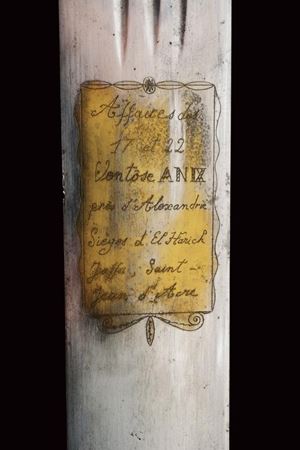 Affaires des
17 et 22
Ventôse AN IX
près d'Alexandrie
Sièges d'El Harich
Jaffa, Saint-
Jean d'Acre